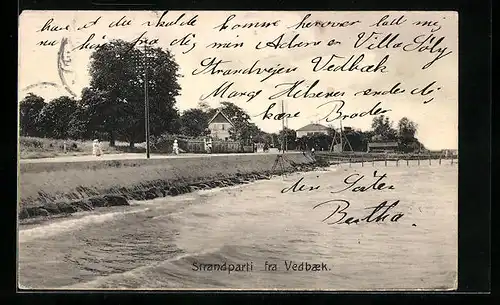 have at du skulde komme herover lad mig
nu hin fra dig, min Adresse er Villa Sølyj
Strandvejen Vedbæk
Mang Hilsener sendes dig
kære Broder
din Søster
Bertha.
Strandparti fra Vedbæk.